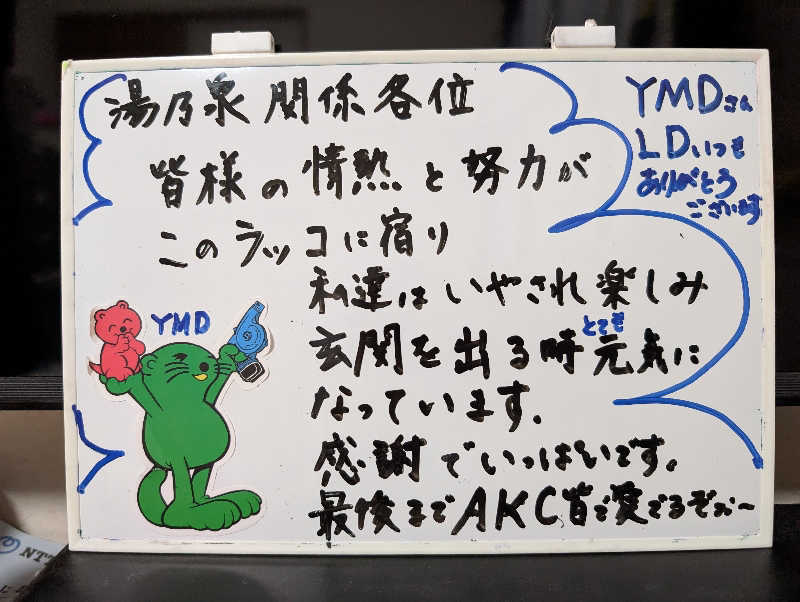 湯乃泉 関係各位
皆様の情熱と努力が
このラッコに宿り
私達はいやされ楽しみ
玄関を出る時とても元気に
なっています.
感謝でいっぱいです。
最後までAKC皆で愛でるぞぉ〜
YMDさん
LDいつも
ありがとう
ございます
YMD
NT